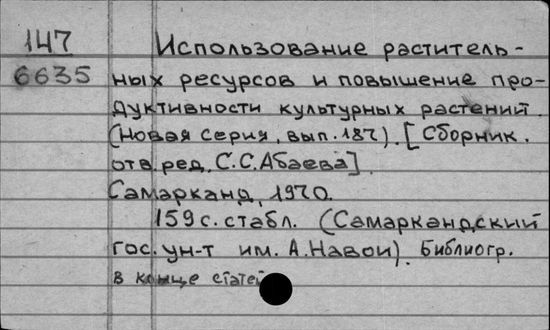 147 Использование раститель-
6635 ных ресурсов и повышение про-
дуктивности культурных растений.
(Новая серия, вып. 187). [Сборник.
отв. ред. С.С. Абаева].
Самарканд, 1970.
159 с. с табл. (Самаркандский
гос. ун-т им. А. Навои). Библиогр.
в конце статей